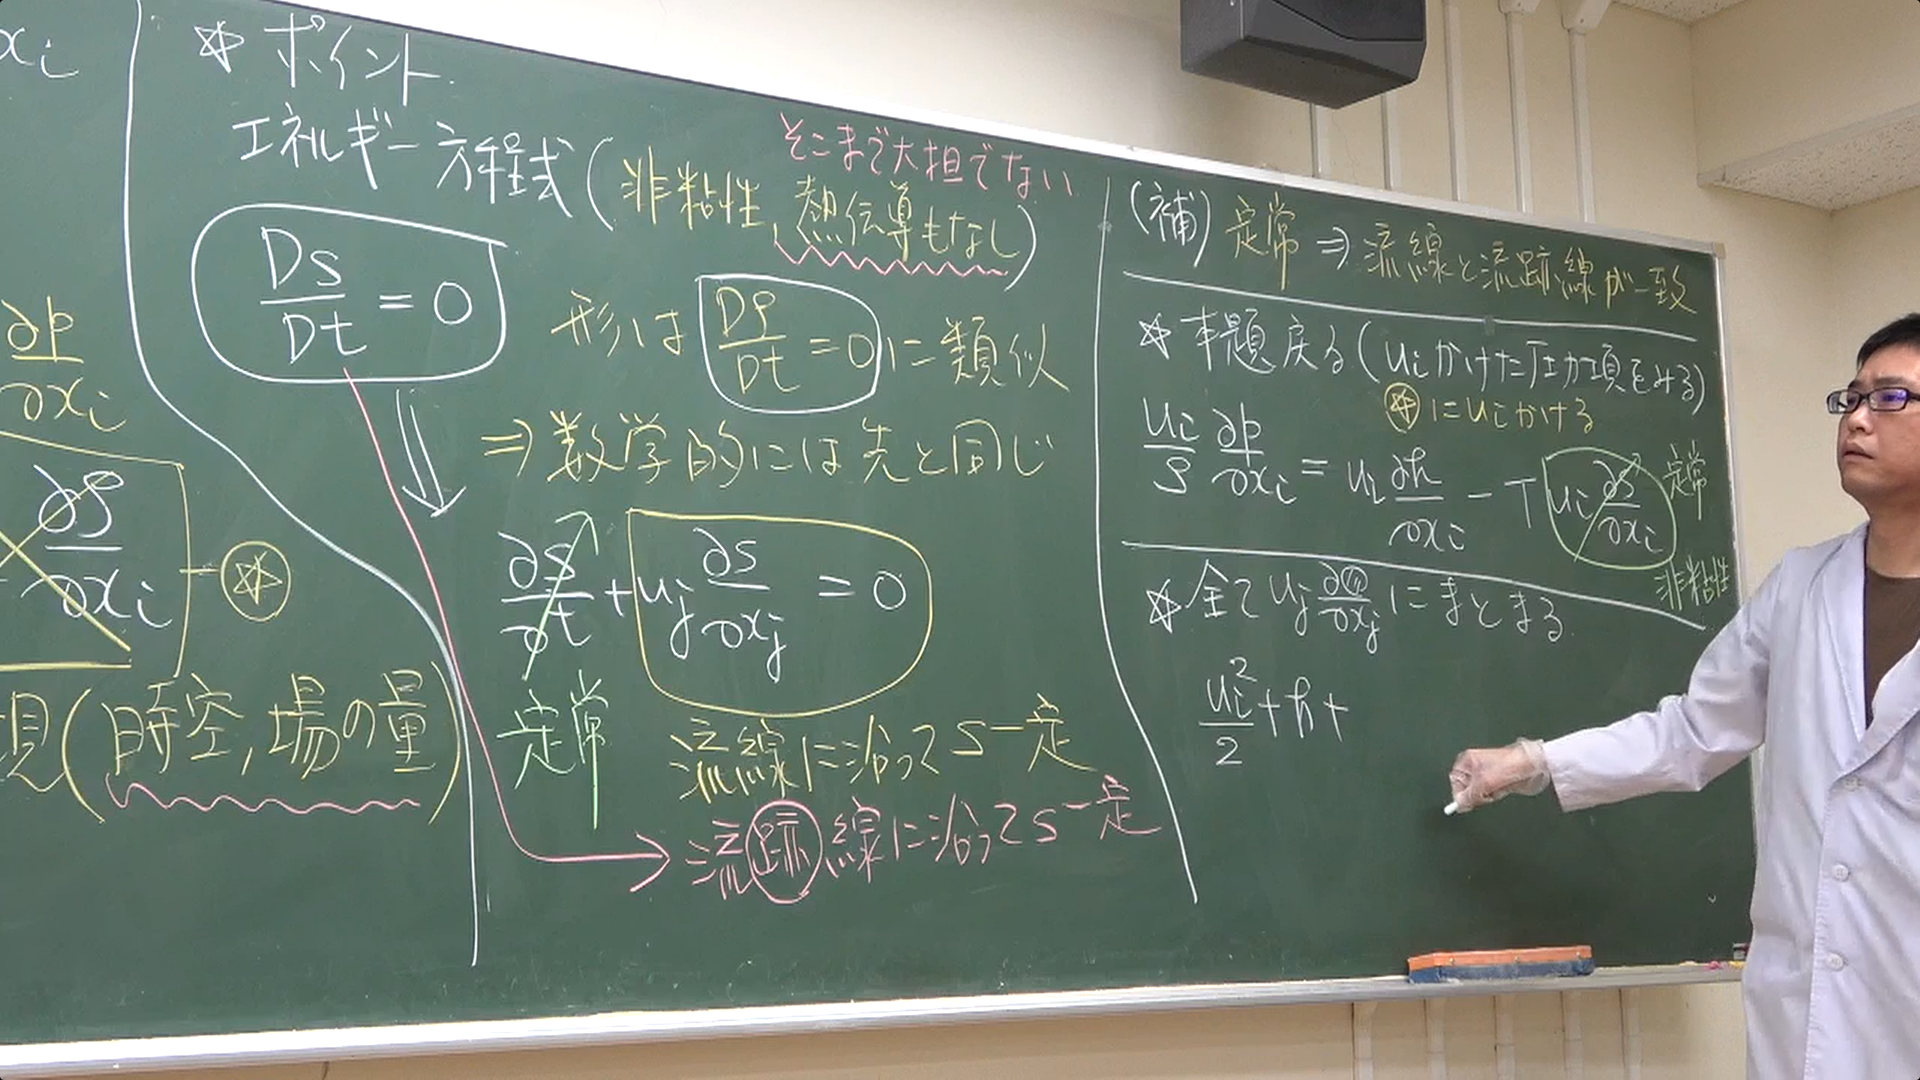 xi
∂p/∂xi
∂s/∂xi — ☆
現(時空,場の量)
☆ ポイント.
エネルギー方程式(非粘性,熱伝導もなし)
そこまで大担でない
Ds/Dt = 0
形は Dρ/Dt = 0 に類似
⇒ 数学的には先と同じ
∂s/∂t + uj ∂s/∂xj = 0
定常
流線に沿ってs一定
流跡線に沿ってs一定
(補) 定常 ⇒ 流線と流跡線が一致
☆ 本題戻る(uiかけた圧力項をみる)
☆にuiかける
ui/ρ ∂p/∂xi = ui ∂h/∂xi − T ui ∂s/∂xi
定常
非粘性
☆ 全て uj ∂()/∂xj にまとまる.
ui²/2 + h +